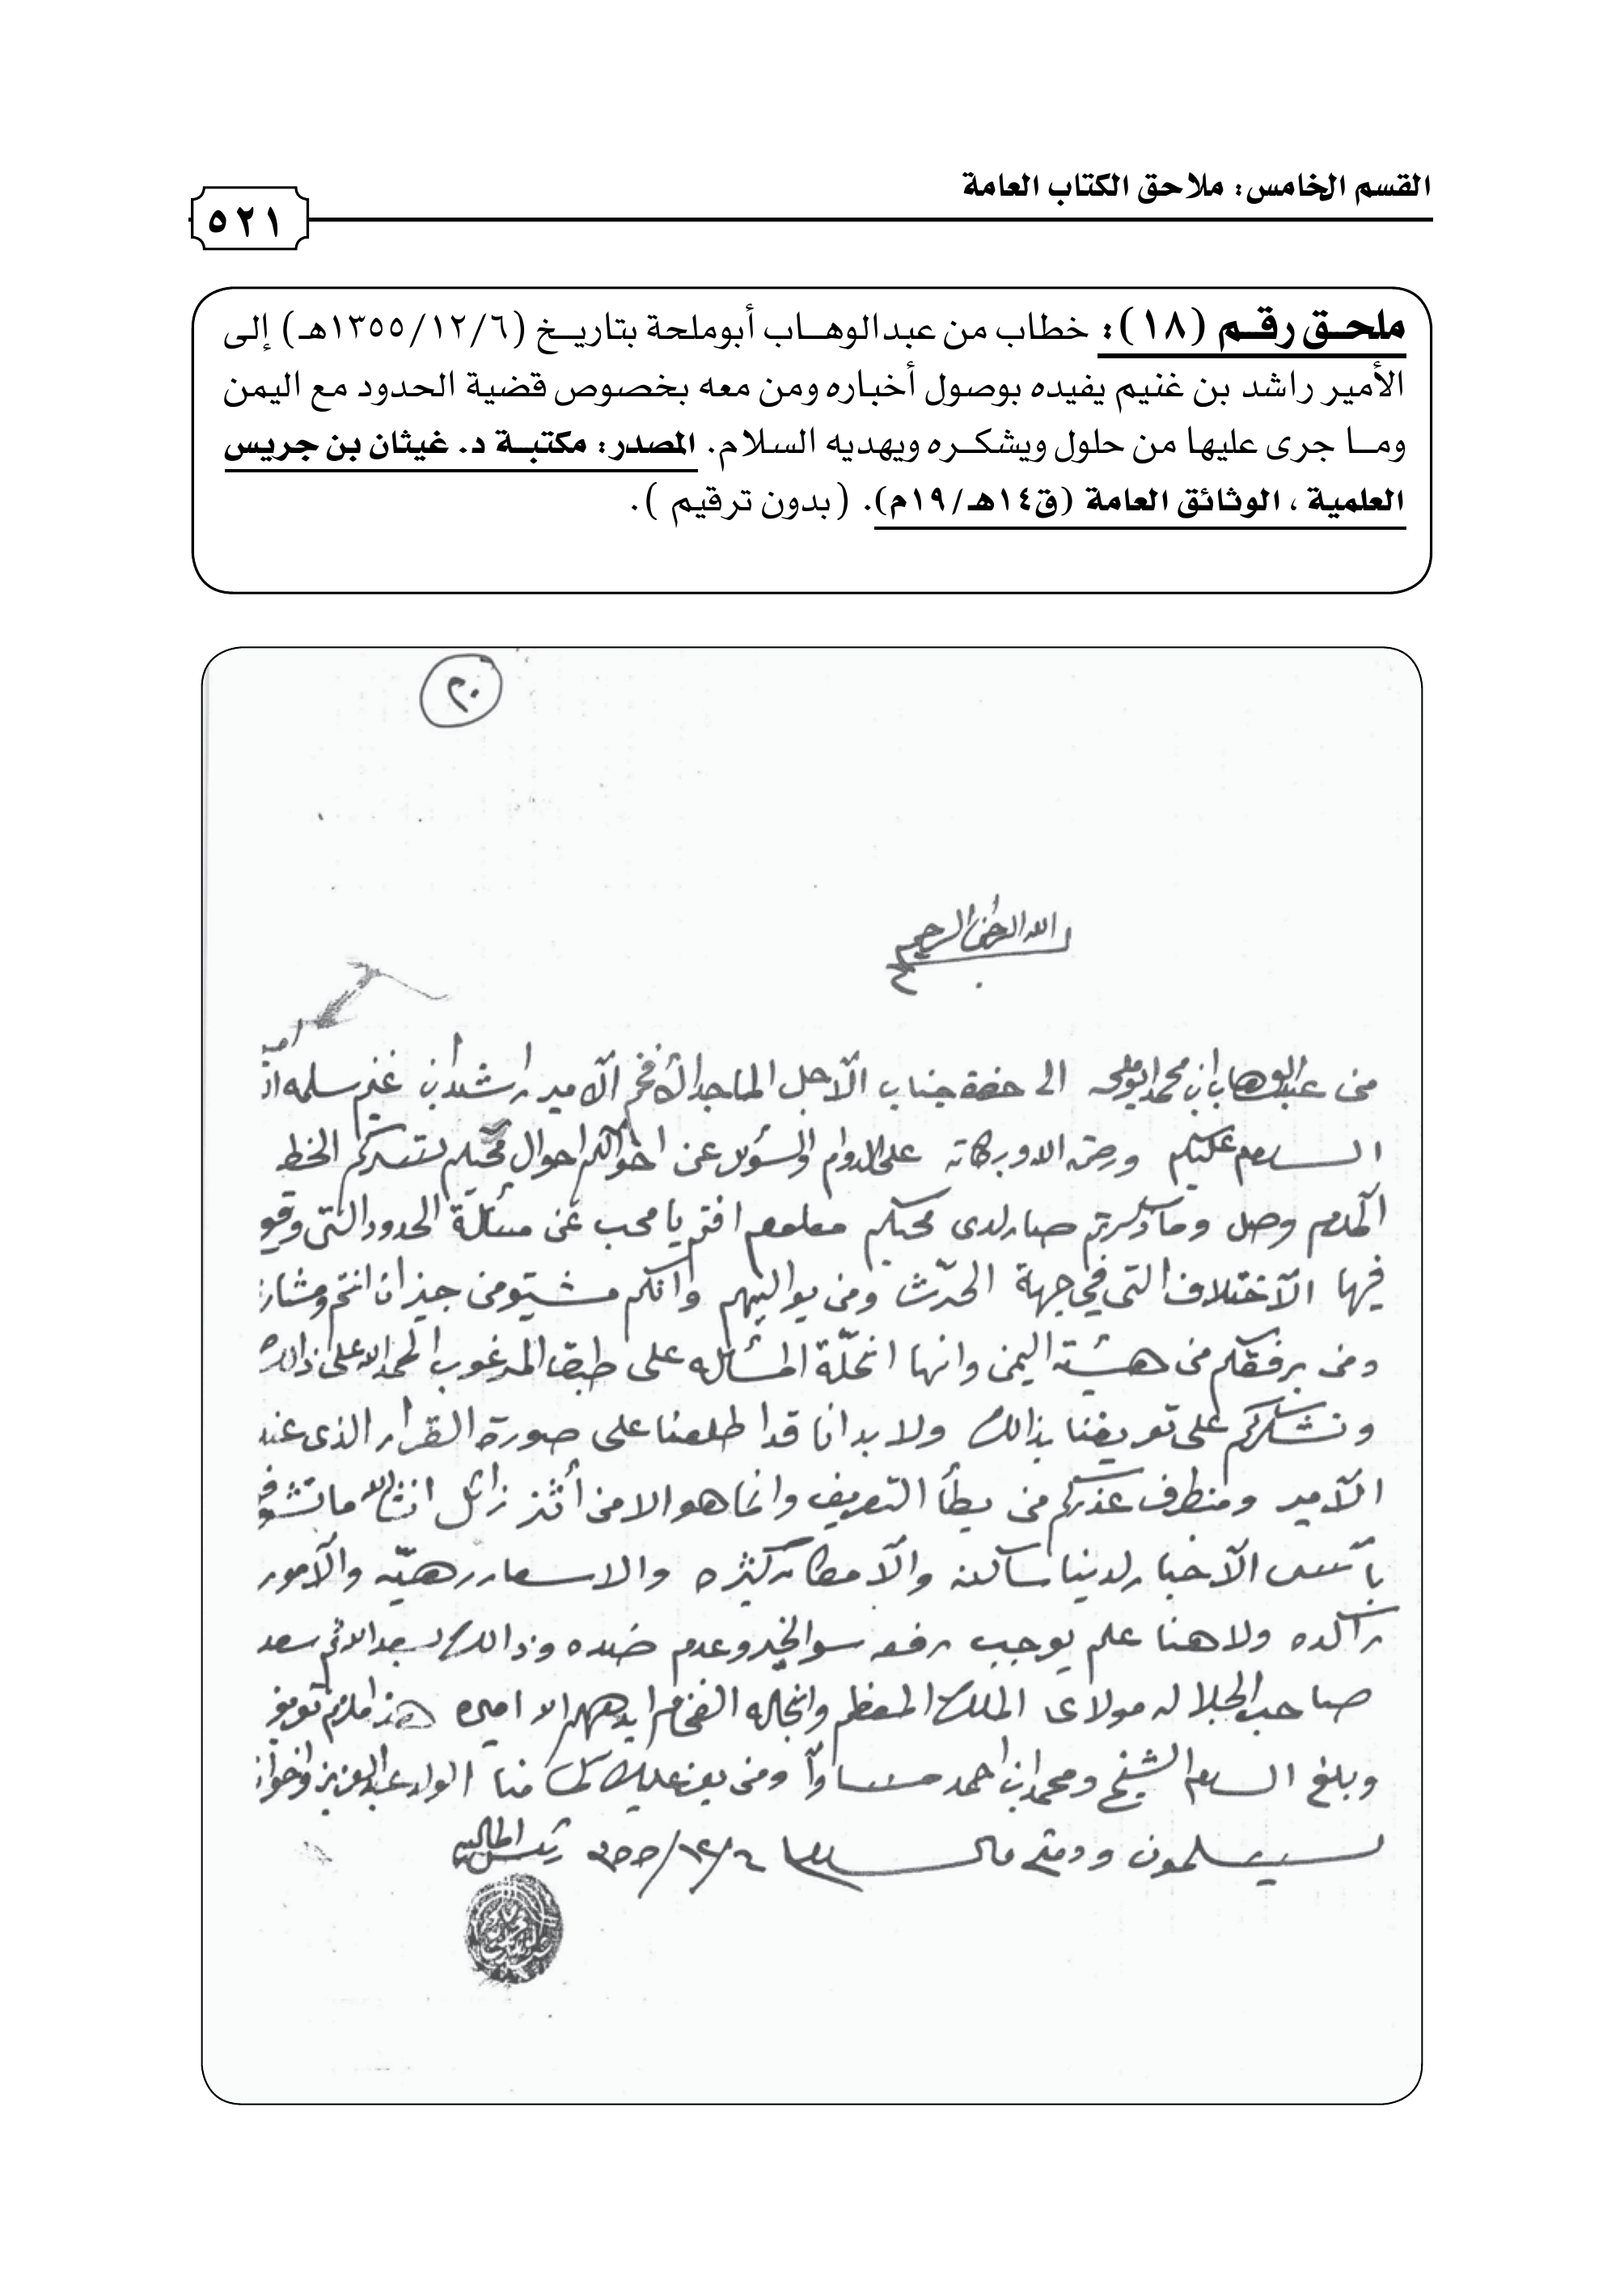 القسم الخامس: ملاحق الكتاب العامة
٥٢١
ملحـق رقـم (١٨): خطاب من عبدالوهـاب أبوملحة بتاريـخ (١٣٥٥/١٢/٦هـ) إلى
الأمير راشد بن غنيم يفيده بوصول أخباره ومن معه بخصوص قضية الحدود مع اليمن
ومـا جرى عليها من حلول ويشكـره ويهديه السلام. المصدر: مكتبـة د. غيثان بن جريس
العلمية ، الوثائق العامة (ق١٤هـ/١٩م). (بدون ترقيم ).
٢٠
بسم الله الرحمن الرحيم
من عبدالوهاب ابن محمد ابوملحه الى حضرة جناب الآجل الماجد الأفخم الآمير راشد ابن غنيم سلمه
السلام عليكم ورحمة الله وبركاته على الدوام والسؤال عن احوالكم احوال محبكم تسركم الخط
المكرم وصل وما ذكرتم صار لدى محبكم معلوم افتم يا محب عن مسئلة الحدود التي وقع
فيها الآختلاف التي في جهة الحرّث ومن يواليهم وانكم مشيتو من جيزان انتم ومشار
ومن برفقكم من هيئة اليمن وانها انحلّة المسأله على طبق المرغوب الحمد الله على ذالك
ونشكركم على تعريفنا بذالك ولا بد انا قد اطلعنا على صورة القرار الذي عند
الآمير ومنطرف عذركم من بطأ التعريف وانما هو الا من أثر زائل انشالله ما تشوفو
بآس الآخبار لدينا ساكنه والآمطار كثيره والاسعار رهيّه والآمور
راكده ولا هنا علم يوجب رفعه سوا الخير وعدم ضده وذالك بسعد الله ثم سعد
صاحب الجلاله مولاى الملك المعظم وانجاله الفخام ايدهم الله امين هذا مالزم تعريفه
وبلغ السلام الشيخ ومحمد ابن احمد ومن يعز عليك كما منا الولد عبدالعزيز واخوانه
يسلمون ودمتم سالمين ٦/١٢/٣٥٥